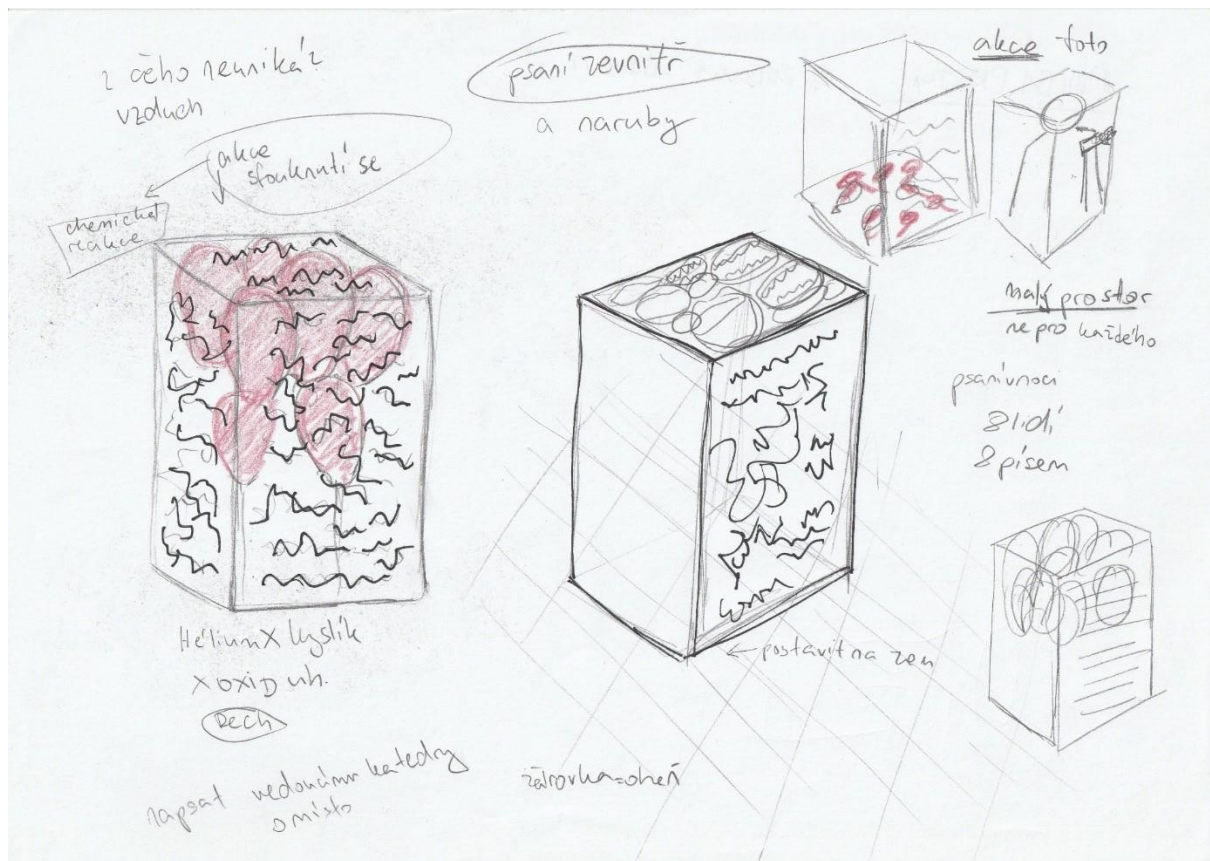 z čeho neuniká?
vzduch
akce
sfouknutí se
chemická
reakce
Hélium X kyslík
X oxiD uh.
Dech
napsat vedoucímu katedry
o místo
psaní zevnitř
a naruby
postavit na zem
žárovka=oheň
akce foto
malý prostor
ne pro každého
psaní v noci
8 lidí
8 písem